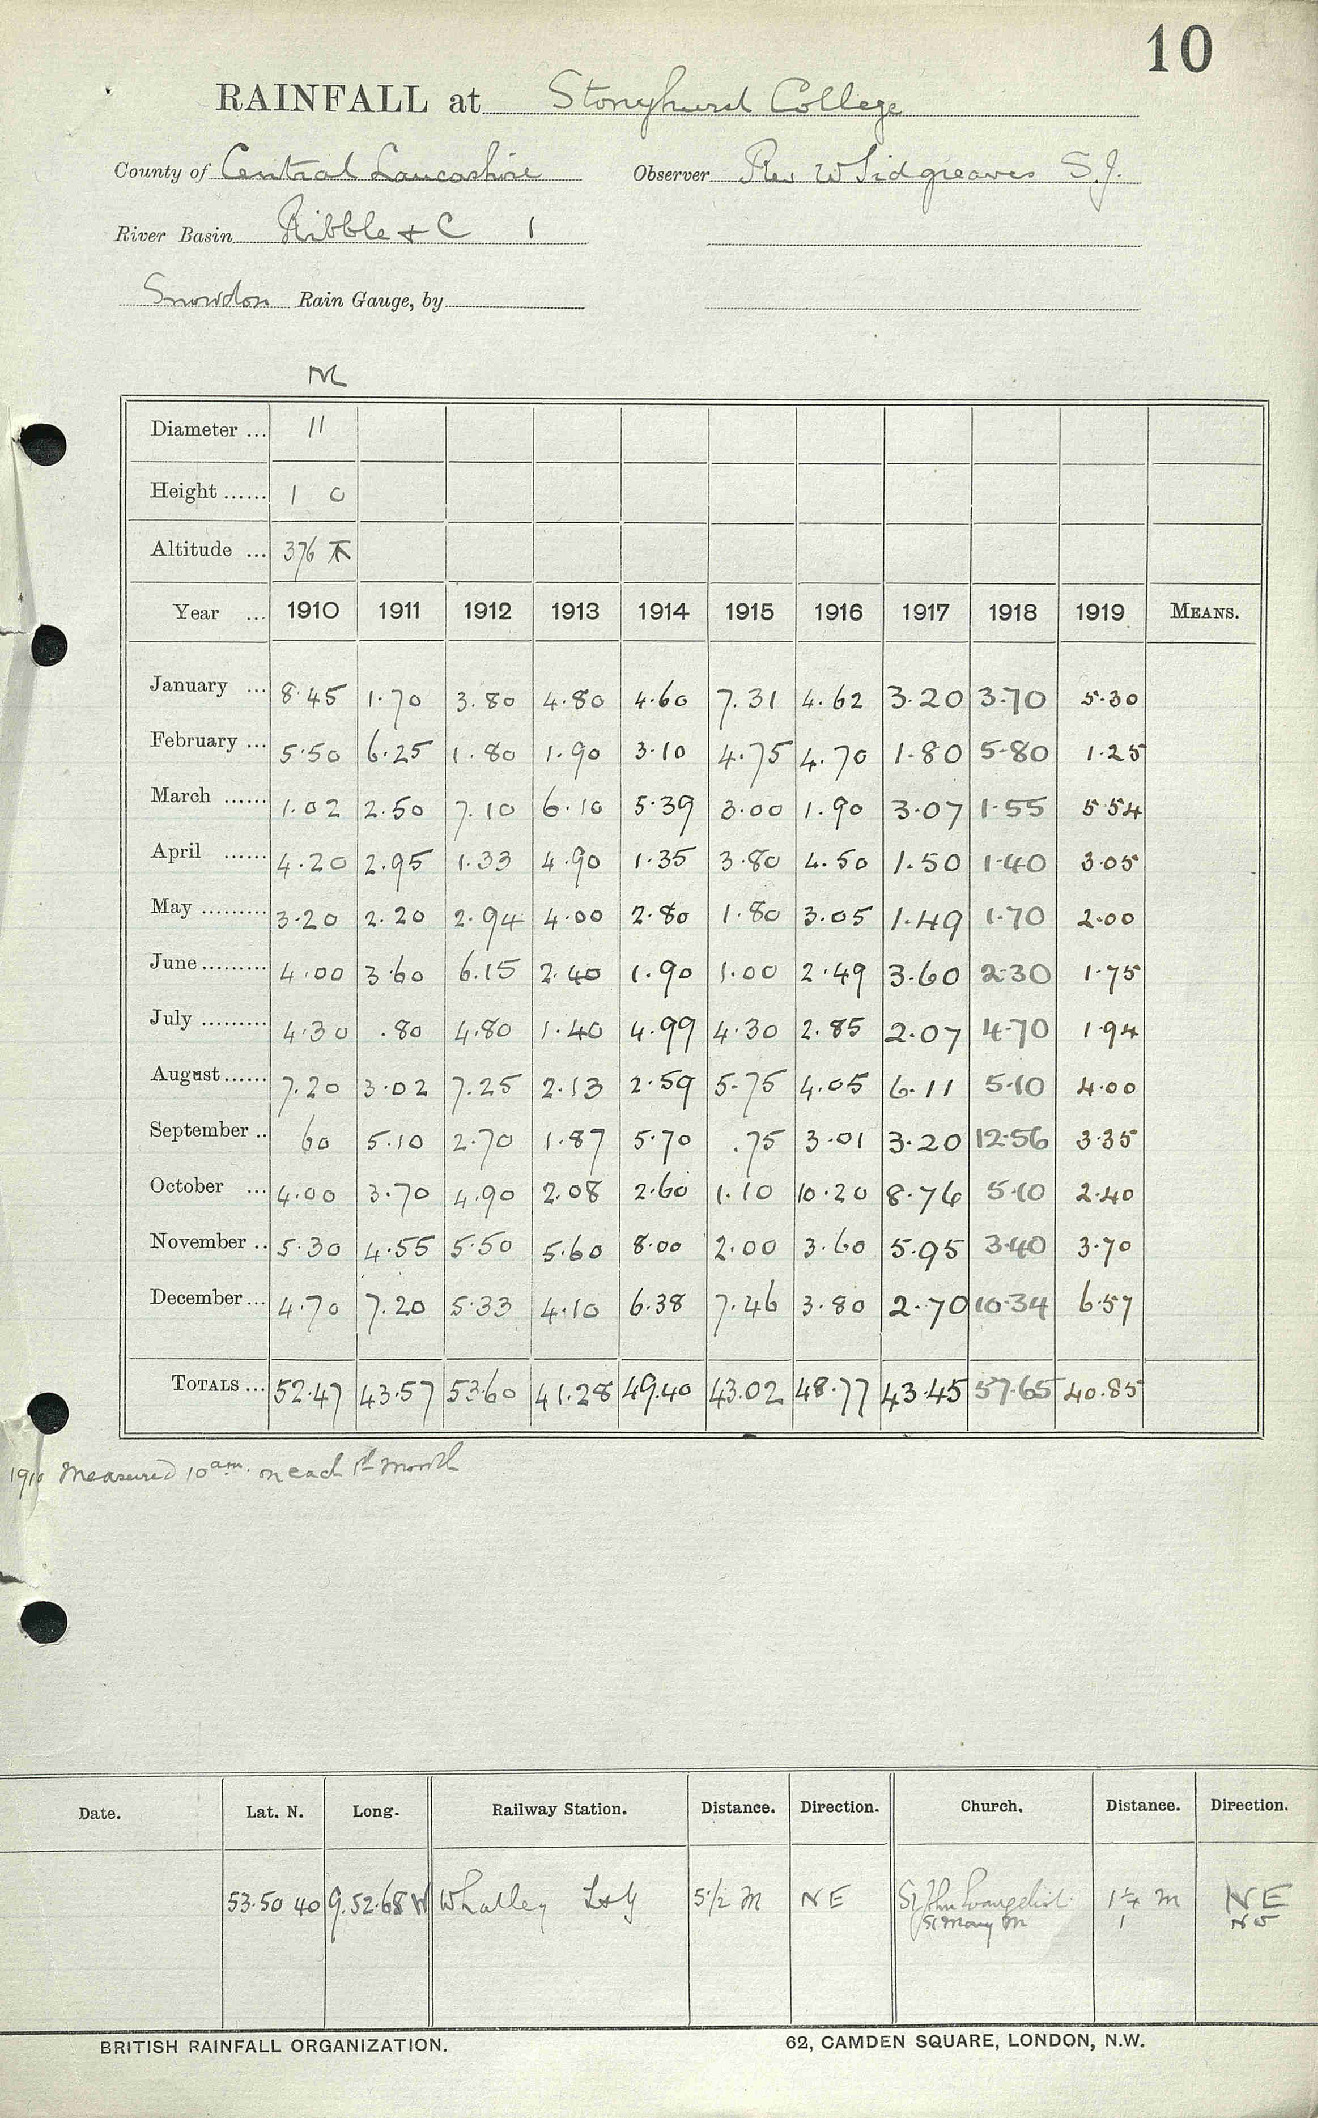 10
RAINFALL at Stonyhurst College
County of Central Lancashire Observer Rev W Sidgreaves S.J.
River Basin Ribble & C 1
Snowdon Rain Gauge, by
M
Diameter ... 11
Height ...... 1 0
Altitude ... 376
Year ... 1910 1911 1912 1913 1914 1915 1916 1917 1918 1919 MEANS.
January ... 8.45 1.70 3.80 4.80 4.60 7.31 4.62 3.20 3.70 5.30
February ... 5.50 6.25 1.80 1.90 3.10 4.75 4.70 1.80 5.80 1.25
March ...... 1.02 2.50 7.10 6.10 5.39 3.00 1.90 3.07 1.55 5.54
April ...... 4.20 2.95 1.33 4.90 1.35 3.80 4.50 1.50 1.40 3.05
May ......... 3.20 2.20 2.94 4.00 2.80 1.80 3.05 1.49 1.70 2.00
June ......... 4.00 3.60 6.15 2.40 1.90 1.00 2.49 3.60 2.30 1.75
July ......... 4.30 .80 4.80 1.40 4.99 4.30 2.85 2.07 4.70 1.94
August ...... 7.20 3.02 7.25 2.13 2.59 5.75 4.05 6.11 5.10 4.00
September .. 60 5.10 2.70 1.87 5.70 .75 3.01 3.20 12.56 3.35
October ... 4.00 3.70 4.90 2.08 2.60 1.10 10.20 8.76 5.10 2.40
November .. 5.30 4.55 5.50 5.60 8.00 2.00 3.60 5.95 3.40 3.70
December ... 4.70 7.20 5.33 4.10 6.38 7.46 3.80 2.70 10.34 6.57
TOTALS ... 52.47 43.57 53.60 41.28 49.40 43.02 48.77 43.45 57.65 40.85
1910 Measured 10 am. on each 1st month
Date. Lat. N. Long. Railway Station. Distance. Direction. Church. Distance. Direction.
53.50 40 9.52.68 W Whalley L&Y 5 1/2 M NE St John Evangelist 1 1/4 m NE
St Mary M 1
BRITISH RAINFALL ORGANIZATION. 62, CAMDEN SQUARE, LONDON, N.W.